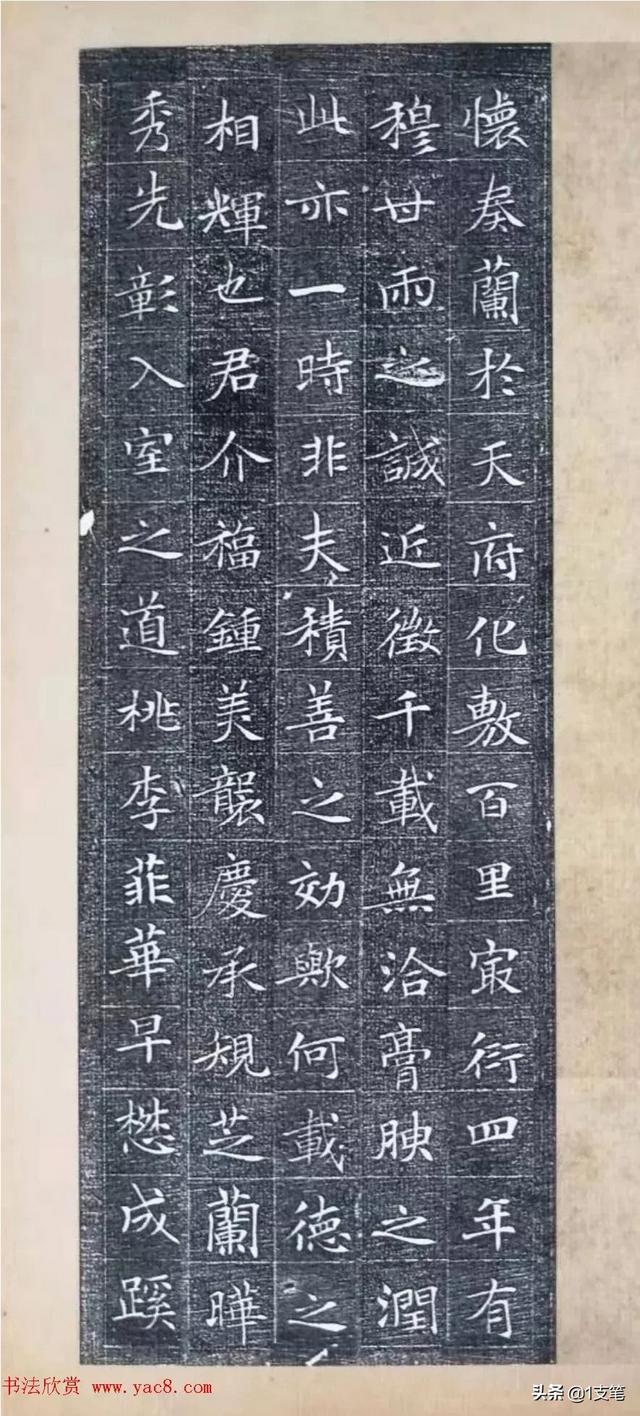 懐奏蘭於天府化敷百里㝡衍四年有
穆世兩之誠近徵千載無洽膏腴之潤
此亦一時非夫積善之効歟何載德之
相輝也君介福鍾美襲慶承規芝蘭曄
秀先彰入室之道桃李菲華早懋成蹊
书法欣赏 www.yac8.com
头条 @1支笔